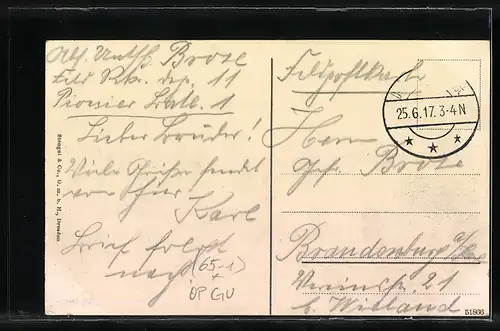 Abs. Untffz. Brose
Feld Rkr. Dep. 11
Pionier Batl. 1
Lieber Bruder!
Viele Grüße sendet
Karl
Brief folgt
nach
(65-1)
+
OP GU
Stengel & Co., G. m. b. H., Dresden
Feldpostkarte
25.6.17. 3-4N
Herrn
Gefr. Brose
Brandenburg a/H.
Vereinstr. 21
b. Wieland
51866